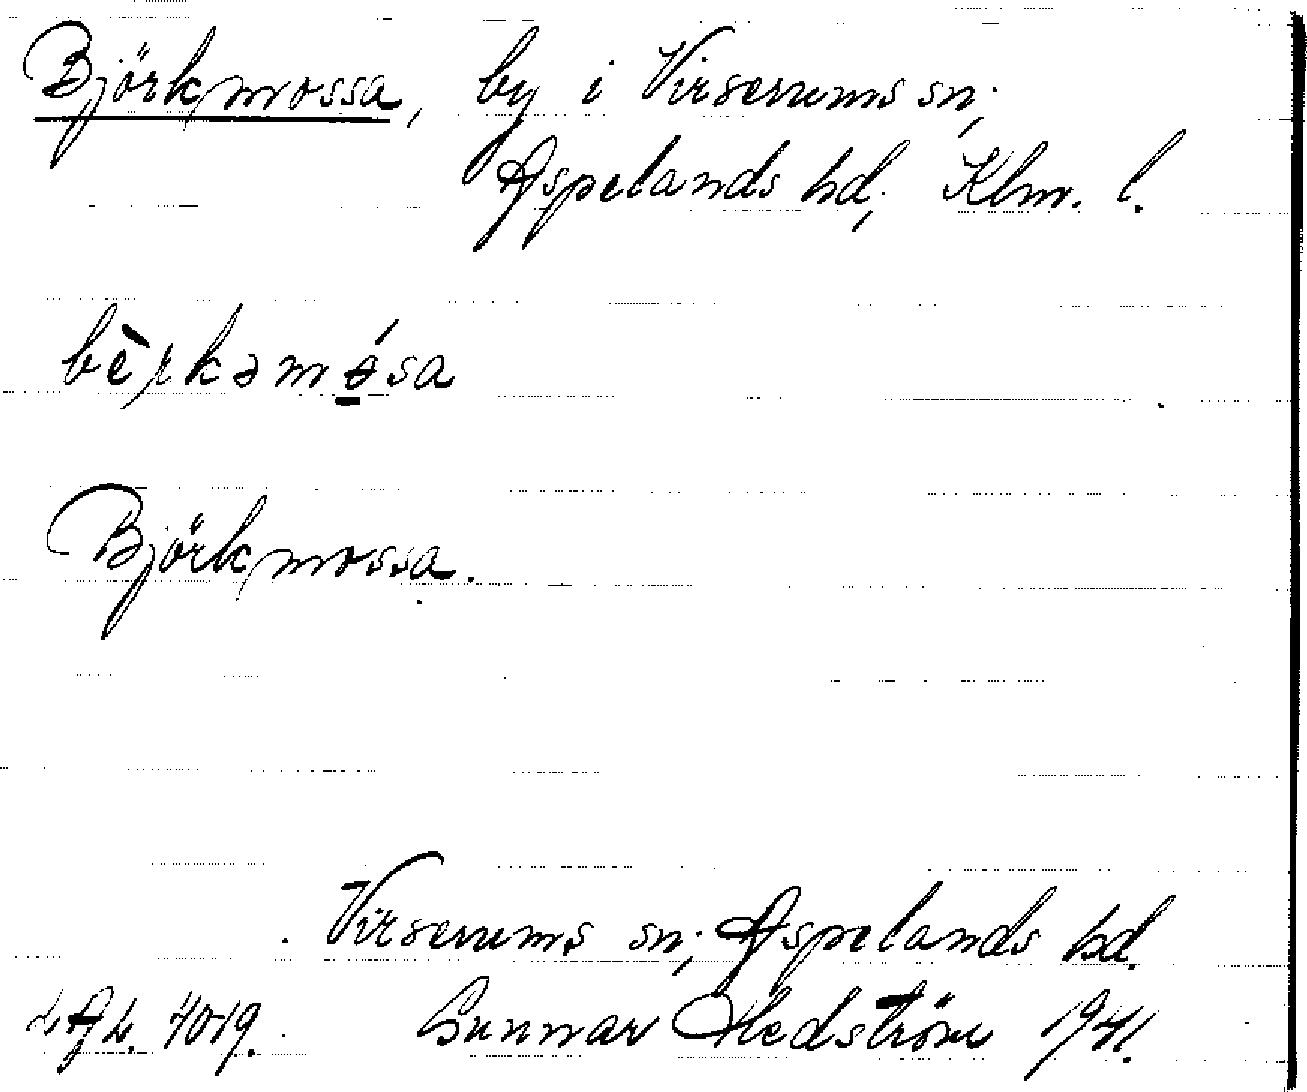 Björkmossa, by i Virserums sn;
Aspelands hd; Klm. l.
bèrkəmə́sa
Björkmossa.
Virserums sn; Aspelands hd.
LAL. 4019. Gunnar Hedström 1941.